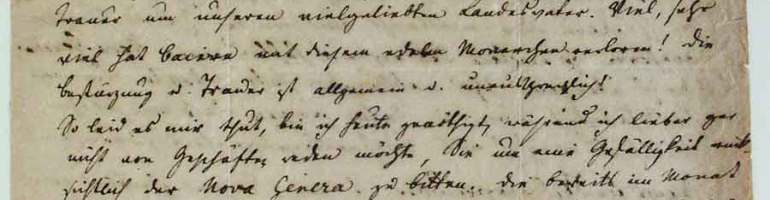 Trauer um unseren vielgeliebten Landesvater. Viel, sehr
viel hat Baiern mit diesem edeln Monarchen verloren! Die
Bestürzung u. Trauer ist allgemein u. unaussprechlich!
So leid es mir thut, bin ich heute genöthigt, während ich lieber gar
nicht von Geschäften reden möchte, Sie um eine Gefälligkeit rück-
sichtlich der Nova Genera zu bitten. Die bereits im Monat